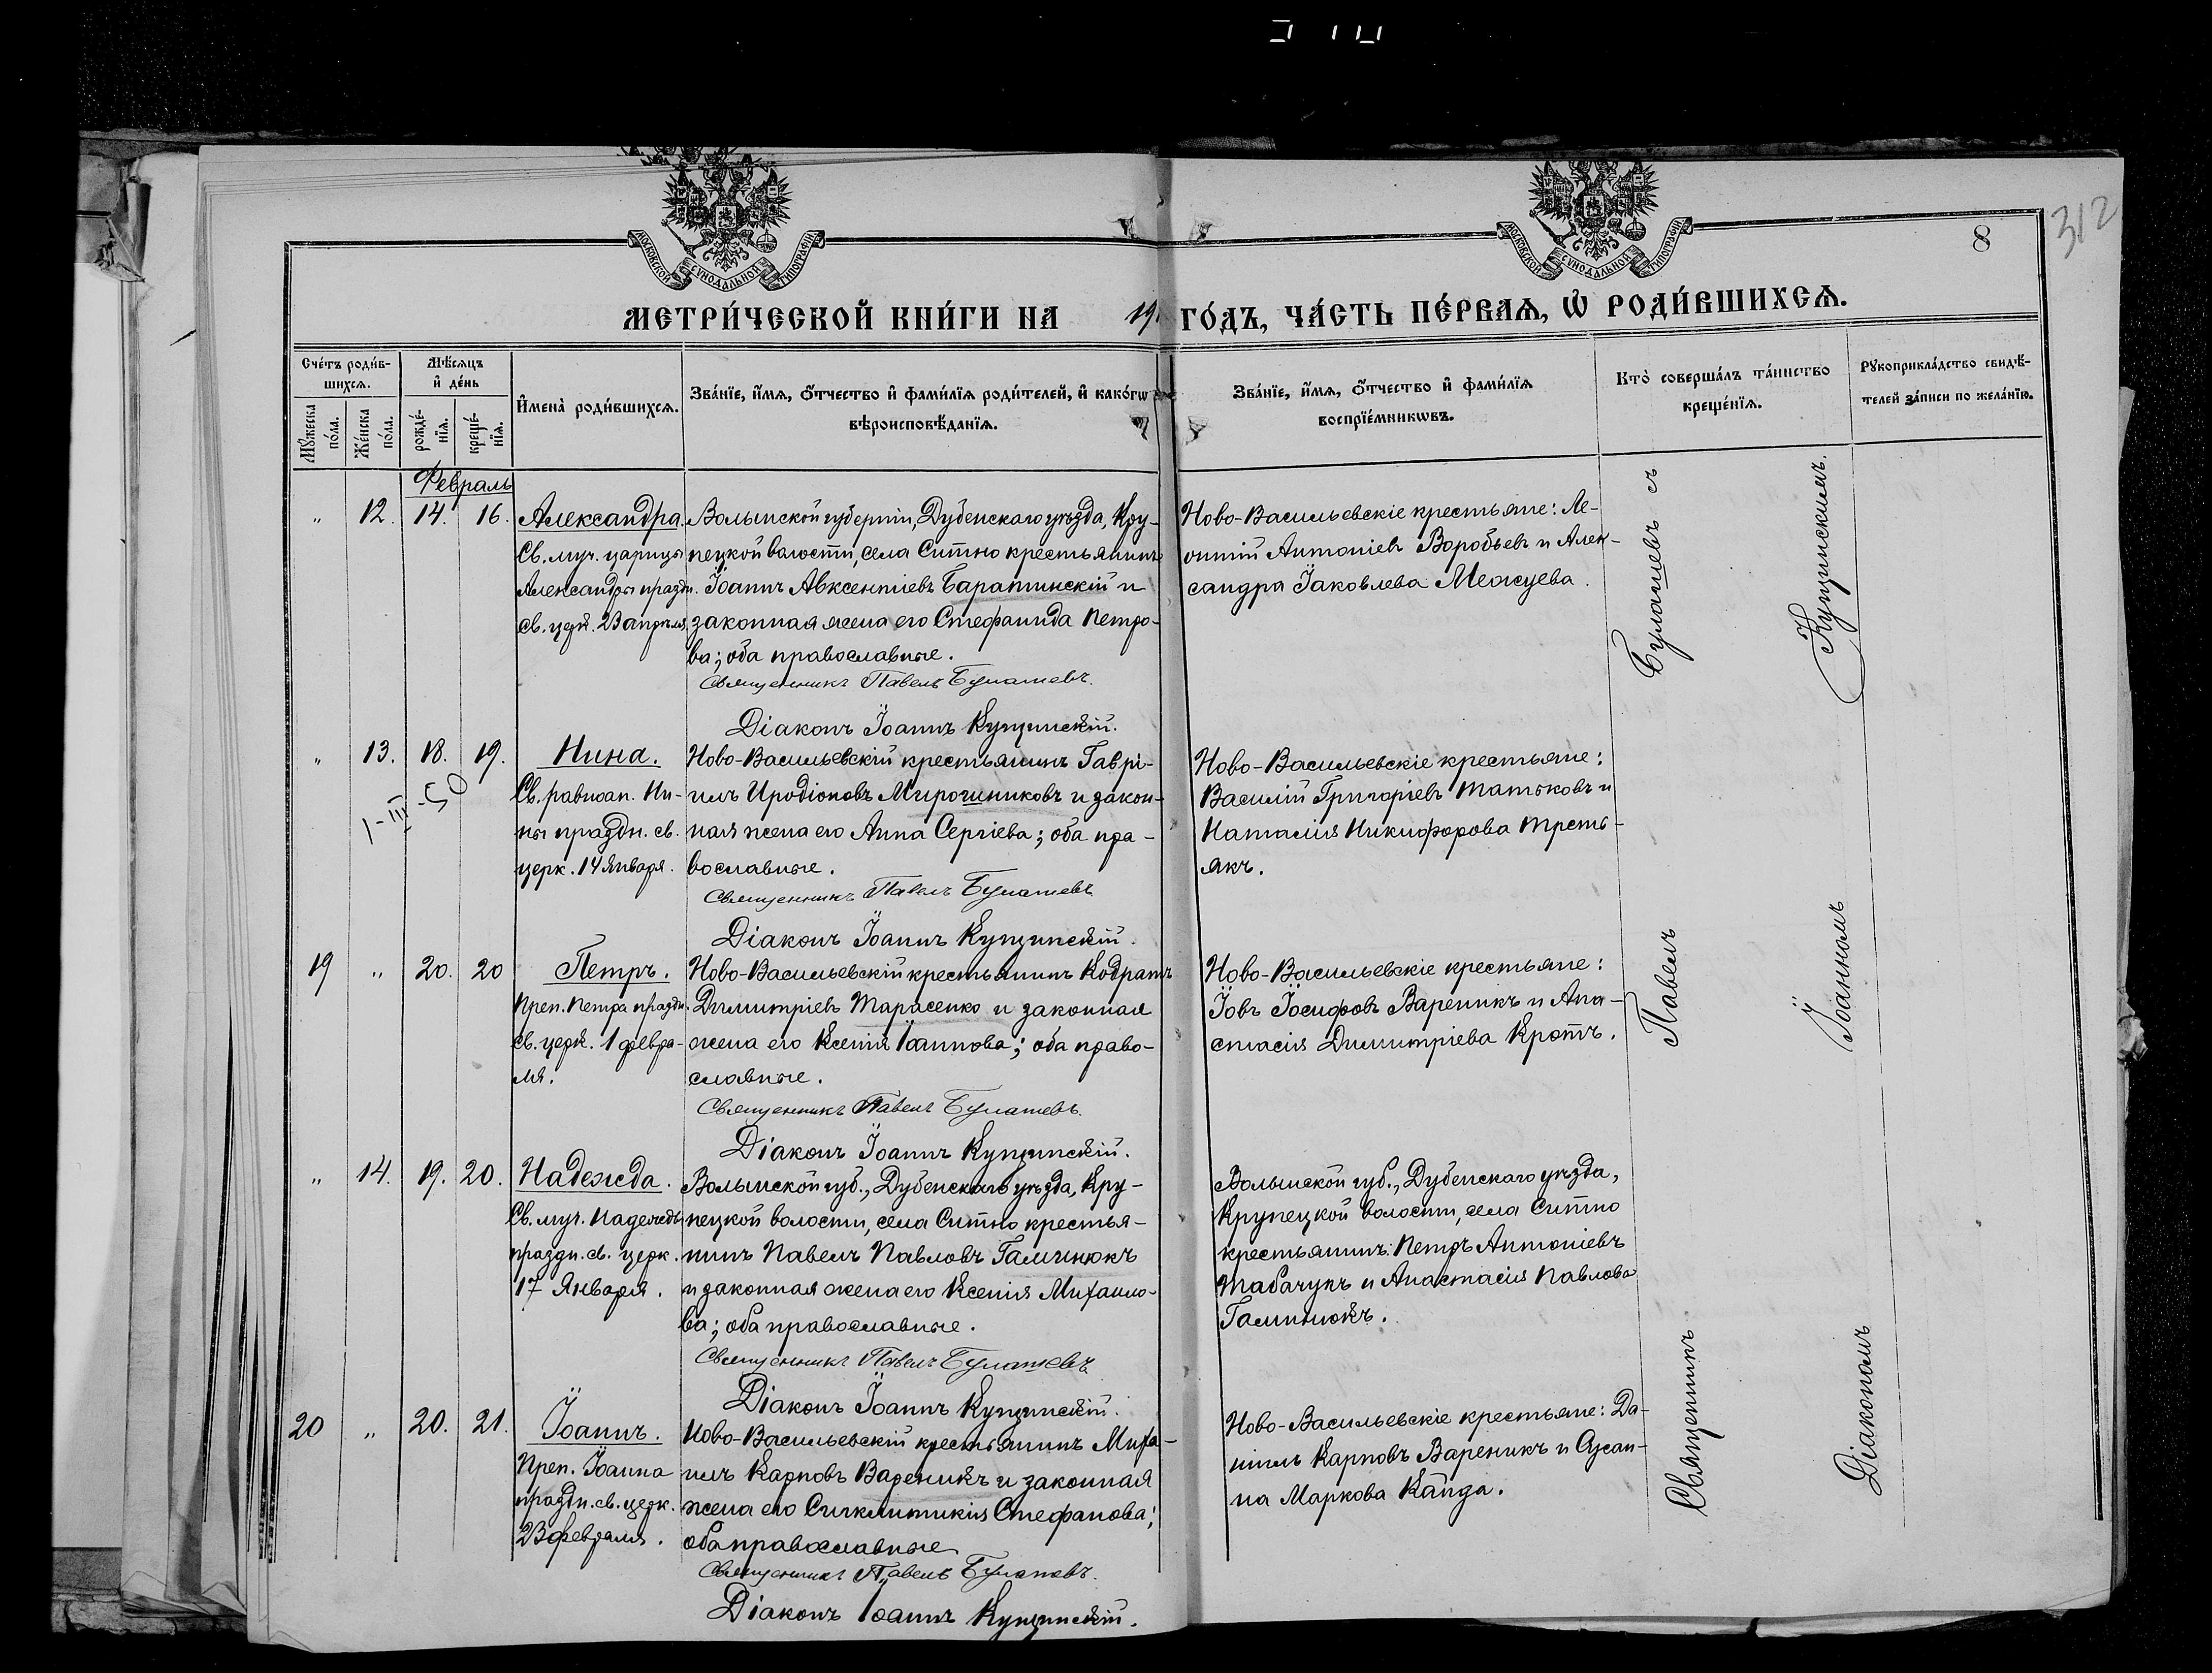 312
8
МОСКОВСКОЙ СѴНОДАЛЬНОЙ ТИПОГРАФІИ
МОСКОВСКОЙ СѴНОДАЛЬНОЙ ТИПОГРАФІИ
МЕТРИ́ЧЕСКОЙ КНИ́ГИ НА 19 ГО́ДЪ, ЧА́СТЬ ПЕ́РВАѦ, Ѡ҆ РОДИ́ВШИХСѦ.
Сче́тъ роди́в-
шихсѧ.
Мꙋ́жеска по́ла.
Же́нска по́ла.
Мѣ́сѧцъ
и҆ де́нь
рожде́-
нїѧ.
креще́-
нїѧ.
И҆мена̀ роди́вшихсѧ.
Зва́нїе, и҆́мѧ, ѻ҆́тчество и҆ фами́лїѧ роди́телей, и҆ како́гѡ
вѣроисповѣ́данїѧ.
Зва́нїе, и҆́мѧ, ѻ҆́тчество и҆ фами́лїѧ
воспрїе́мникѡвъ.
Кто̀ соверша́лъ та́инство
креще́нїѧ.
Рꙋкоприкла́дство свидѣ́-
телей за́писи по жела́нїю.
Февраль
" 12. 14. 16.
Александра.
Св. муч. царицы
Александры праздн.
св. церк. 23 апрѣля.
Волынской губерніи, Дубенскаго уѣзда, Кру-
пецкой волости, села Ситно крестьянинъ
Іоаннъ Авксентіевъ Баратинскій и
законная жена его Стефанида Петро-
ва; оба православные.
Священникъ Павелъ Булашевъ.
Діаконъ Іоаннъ Кущинскій.
Ново-Васильевскіе крестьяне: Ле-
онтій Антоніевъ Воробьевъ и Алек-
сандра Іаковлева Межуева.
" 13. 18. 19.
1-III-50
Нина.
Св. равноап. Ни-
ны праздн. св.
церк. 14 Января.
Ново-Васильевскій крестьянинъ Гаврі-
илъ Иродіоновъ Мирошниковъ и закон-
ная жена его Анна Сергіева; оба пра-
вославные.
Священникъ Павелъ Булашевъ
Діаконъ Іоаннъ Кущинскій.
Ново-Васильевскіе крестьяне:
Василій Григоріевъ Татьковъ и
Наталія Никифорова Треть-
якъ.
19 " 20. 20
Петръ.
Преп. Петра праздн.
св. церк. 1 февра-
ля.
Ново-Васильевскій крестьянинъ Кодратъ
Димитріевъ Тарасенко и законная
жена его Ксенія Іоаннова; оба право-
славные.
Священникъ Павелъ Булашевъ.
Діаконъ Іоаннъ Кущинскій.
Ново-Васильевскіе крестьяне:
Іовъ Іосифовъ Вареникъ и Ана-
стасія Димитріева Кротъ.
" 14. 19. 20.
Надежда.
Св. муч. Надежды
праздн. св. церк.
17 Января.
Волынской губ., Дубенскаго уѣзда, Кру-
пецкой волости, села Ситно крестья-
нинъ Павелъ Павловъ Галинюкъ
и законная жена его Ксенія Михаило-
ва; оба православные.
Священникъ Павелъ Булашевъ
Діаконъ Іоаннъ Кущинскій.
Волынской губ., Дубенскаго уѣзда,
Крупецкой волости, села Ситно
крестьянинъ: Петръ Антоніевъ
Табачукъ и Анастасія Павлова
Галинюкъ.
20 " 20. 21.
Іоаннъ.
Преп. Іоанна
праздн. св. церк.
23 февраля.
Ново-Васильевскій крестьянинъ Миха-
илъ Карповъ Вареникъ и законная
жена его Сигклитикія Стефанова;
оба православные
Священникъ Павелъ Булашевъ.
Діаконъ Іоаннъ Кущинскій.
Ново-Васильевскіе крестьяне: Да-
ніилъ Карповъ Вареникъ и Сусан-
на Маркова Капда.
Священникъ Павелъ Булашевъ съ
Діакономъ Іоанномъ Кущинскимъ.